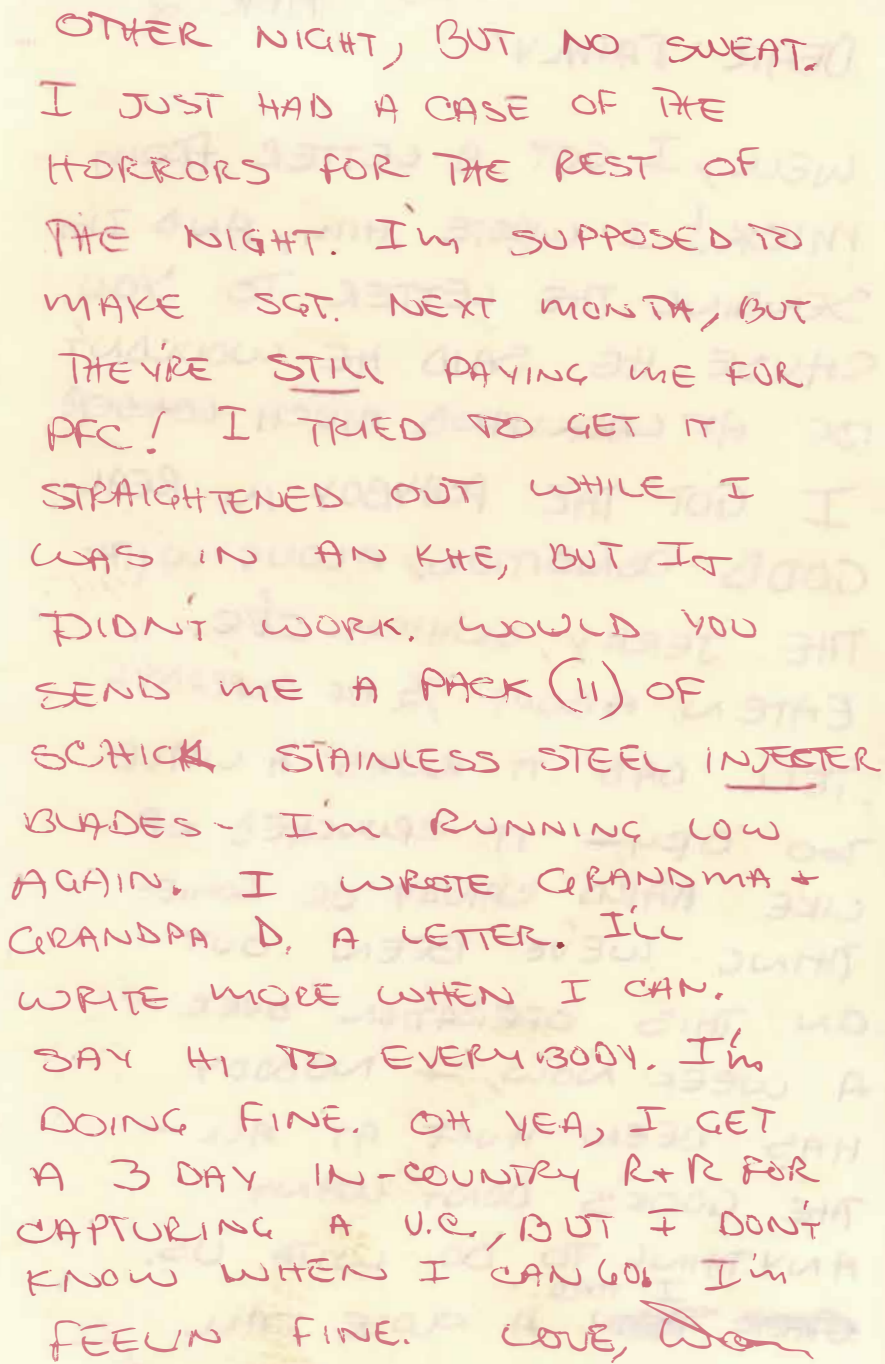 OTHER NIGHT, BUT NO SWEAT.
I JUST HAD A CASE OF THE
HORRORS FOR THE REST OF
THE NIGHT. I'm SUPPOSED TO
MAKE SGT. NEXT MONTH, BUT
THEY'RE STILL PAYING ME FOR
PFC! I TRIED TO GET IT
STRAIGHTENED OUT WHILE I
WAS IN AN KHE, BUT IT
DIDN'T WORK. WOULD YOU
SEND ME A PACK (11) OF
SCHICK STAINLESS STEEL INJECTER
BLADES - I'm RUNNING LOW
AGAIN. I WROTE GRANDMA +
GRANDPA D. A LETTER. I'LL
WRITE MORE WHEN I CAN.
SAY HI TO EVERYBODY. I'm
DOING FINE. OH YEA, I GET
A 3 DAY IN-COUNTRY R+R FOR
CAPTURING A V.C., BUT I DON'T
KNOW WHEN I CAN GO. I'm
FEELIN FINE. LOVE,